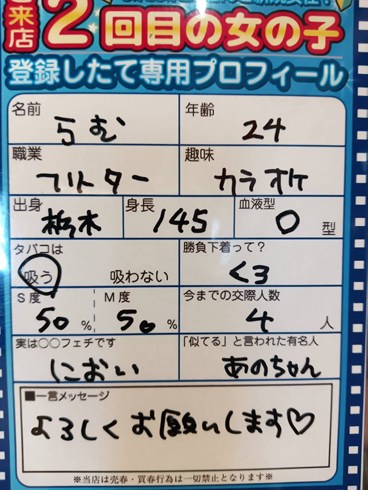 来店2回目の女の子
登録したて専用プロフィール
名前 らむ 年齢 24
職業 フリーター 趣味 カラオケ
出身 栃木 身長 145 血液型 O 型
タバコは 吸う 吸わない 勝負下着って? くろ
S度 50 % M度 50 % 今までの交際人数 4 人
実は○○フェチです におい 「似てる」と言われた有名人 あのちゃん
■一言メッセージ
よろしくお願いします♡
※当店は売春・買春行為は一切禁止となります※